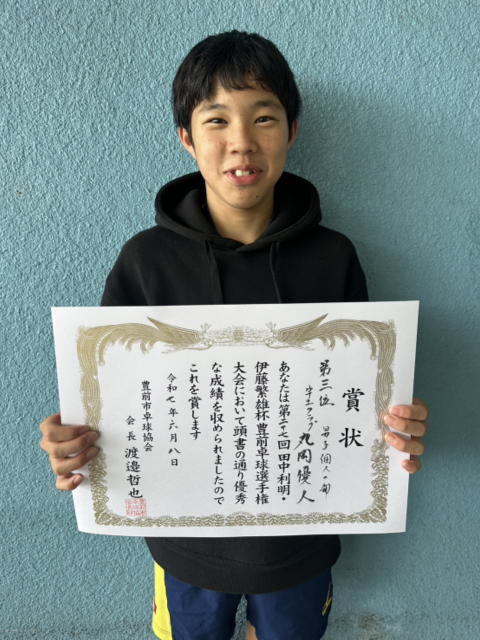 賞状
第三位 男子個人の部
丸岡優人
あなたは第二十七回田中利明・
伊藤繁雄杯豊前卓球選手権
大会において頭書の通り優秀
な成績を収められましたので
これを賞します
令和七年六月八日
豊前市卓球協会
会長 渡邉哲也